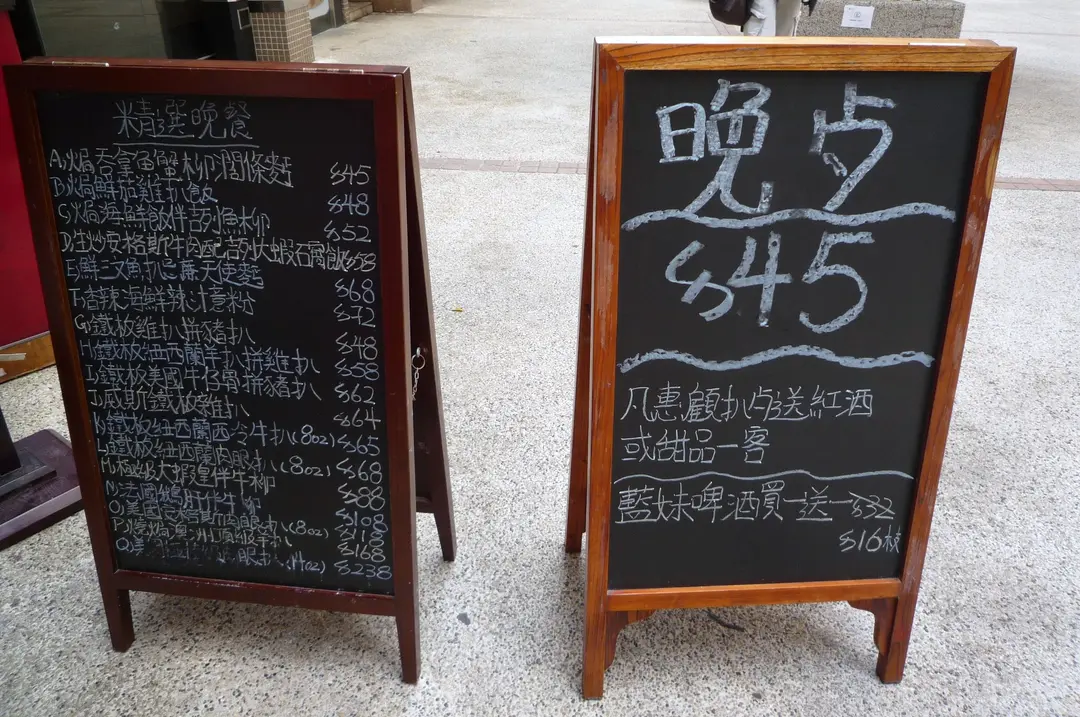 精選晚餐
A.焗吞拿魚蟹柳闊條麵 $45
B.焗鮮茄雞扒飯 $48
C.焗海鮮飯伴魚柳 $52
D.生炒安格斯牛肉配大蝦石窩飯 $58
E.鮮三文魚扒天使麵 $68
F.香辣海鮮辣汁意粉 $72
G.鐵板雞扒拼豬扒 $48
H.鐵板紐西蘭羊扒拼雞扒 $58
I.鐵板美國牛仔骨拼豬扒 $62
J.威斯鐵板雜扒 $64
K.鐵板紐西蘭西冷牛扒(8oz) $65
L.鐵板紐西蘭肉眼扒(8oz) $68
M.大蝦皇伴牛柳 $88
N.法國鵝肝伴牛柳 $108
O.美國安格斯肉眼扒(8oz) $118
P.燒焗澳洲頂級羊扒 $168
Q. 眼扒(14oz) $238
晚市
$45
凡惠顧扒類送紅酒
或甜品一客
藍妹啤酒買一送一$32
$16枝